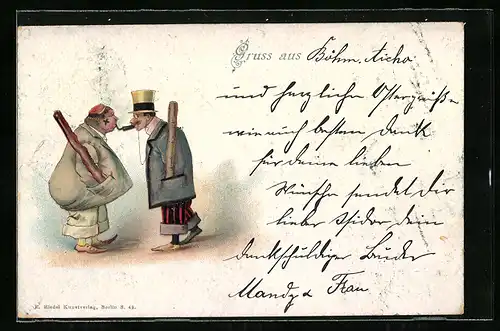 Gruss aus Böhm. Aicha
und herzlichen Ostergrüße
wie auch besten Dank
für deine lieben
Wünsche sendet Dir
lieber Isidor dein
dankschuldiger Bruder
Mandy & Frau
E. Riedel Kunstverlag, Berlin S. 42.